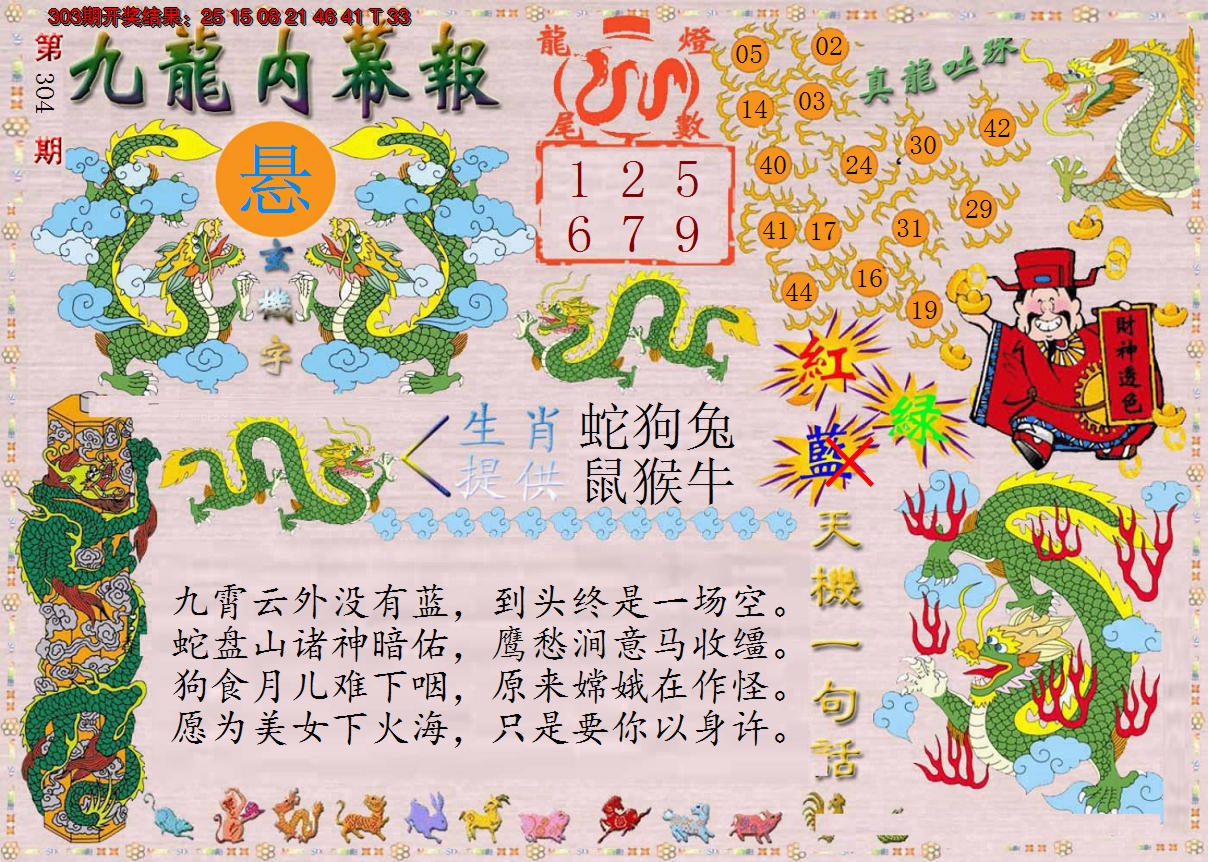 303期开奖结果：25 15 08 21 46 41 T 33
第304期
九龍内幕報
悬
玄機字
龍燈
尾數
1 2 5
6 7 9
真龍吐珠
05 02
14 03
40 24 30 42
41 17 31 29
44 16 19
財神透色
紅
綠
藍
生肖 蛇狗兔
提供 鼠猴牛
天機一句话
九霄云外没有蓝，到头终是一场空。
蛇盘山诸神暗佑，鹰愁涧意马收缰。
狗食月儿难下咽，原来嫦娥在作怪。
愿为美女下火海，只是要你以身许。